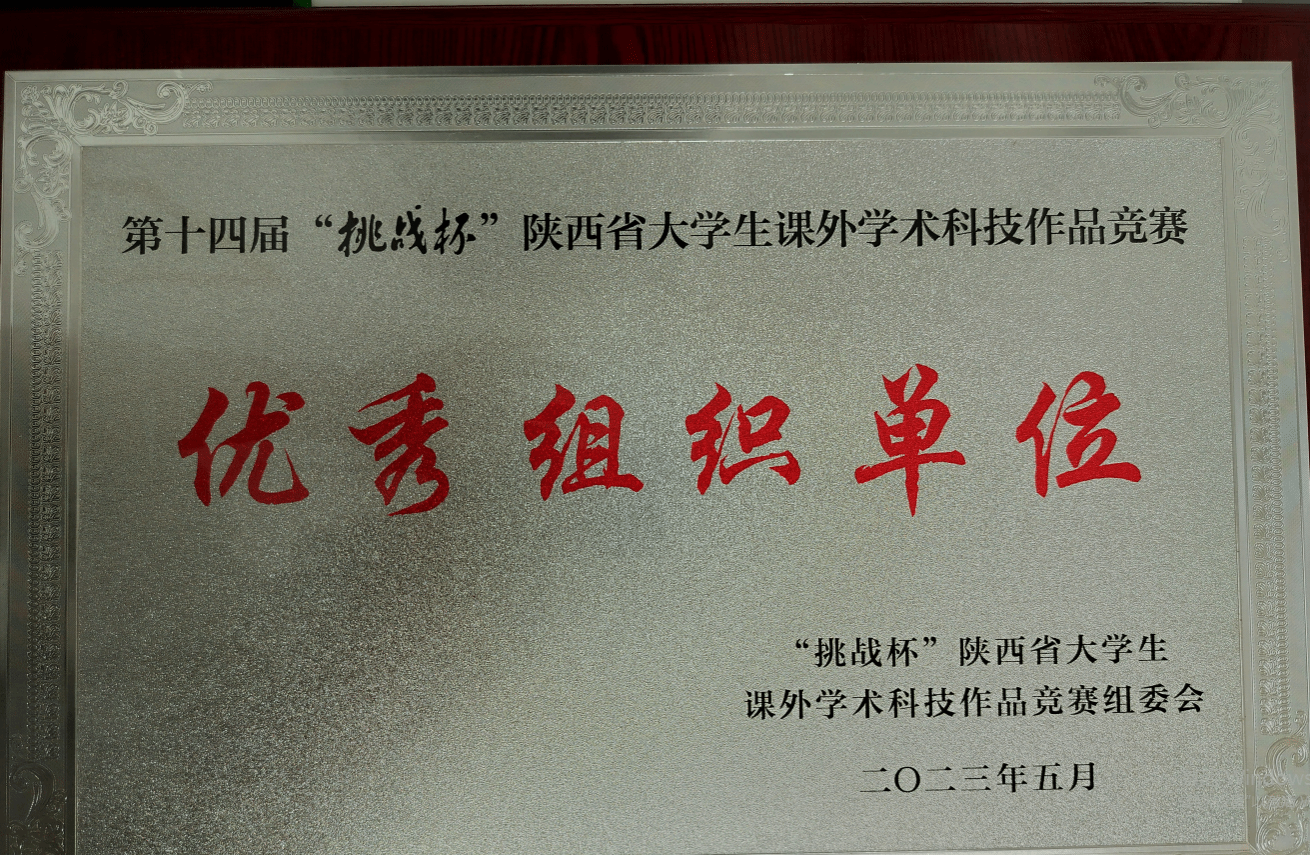 第十四届“挑战杯”陕西省大学生课外学术科技作品竞赛
优秀组织单位
“挑战杯”陕西省大学生
课外学术科技作品竞赛组委会
二〇二三年五月